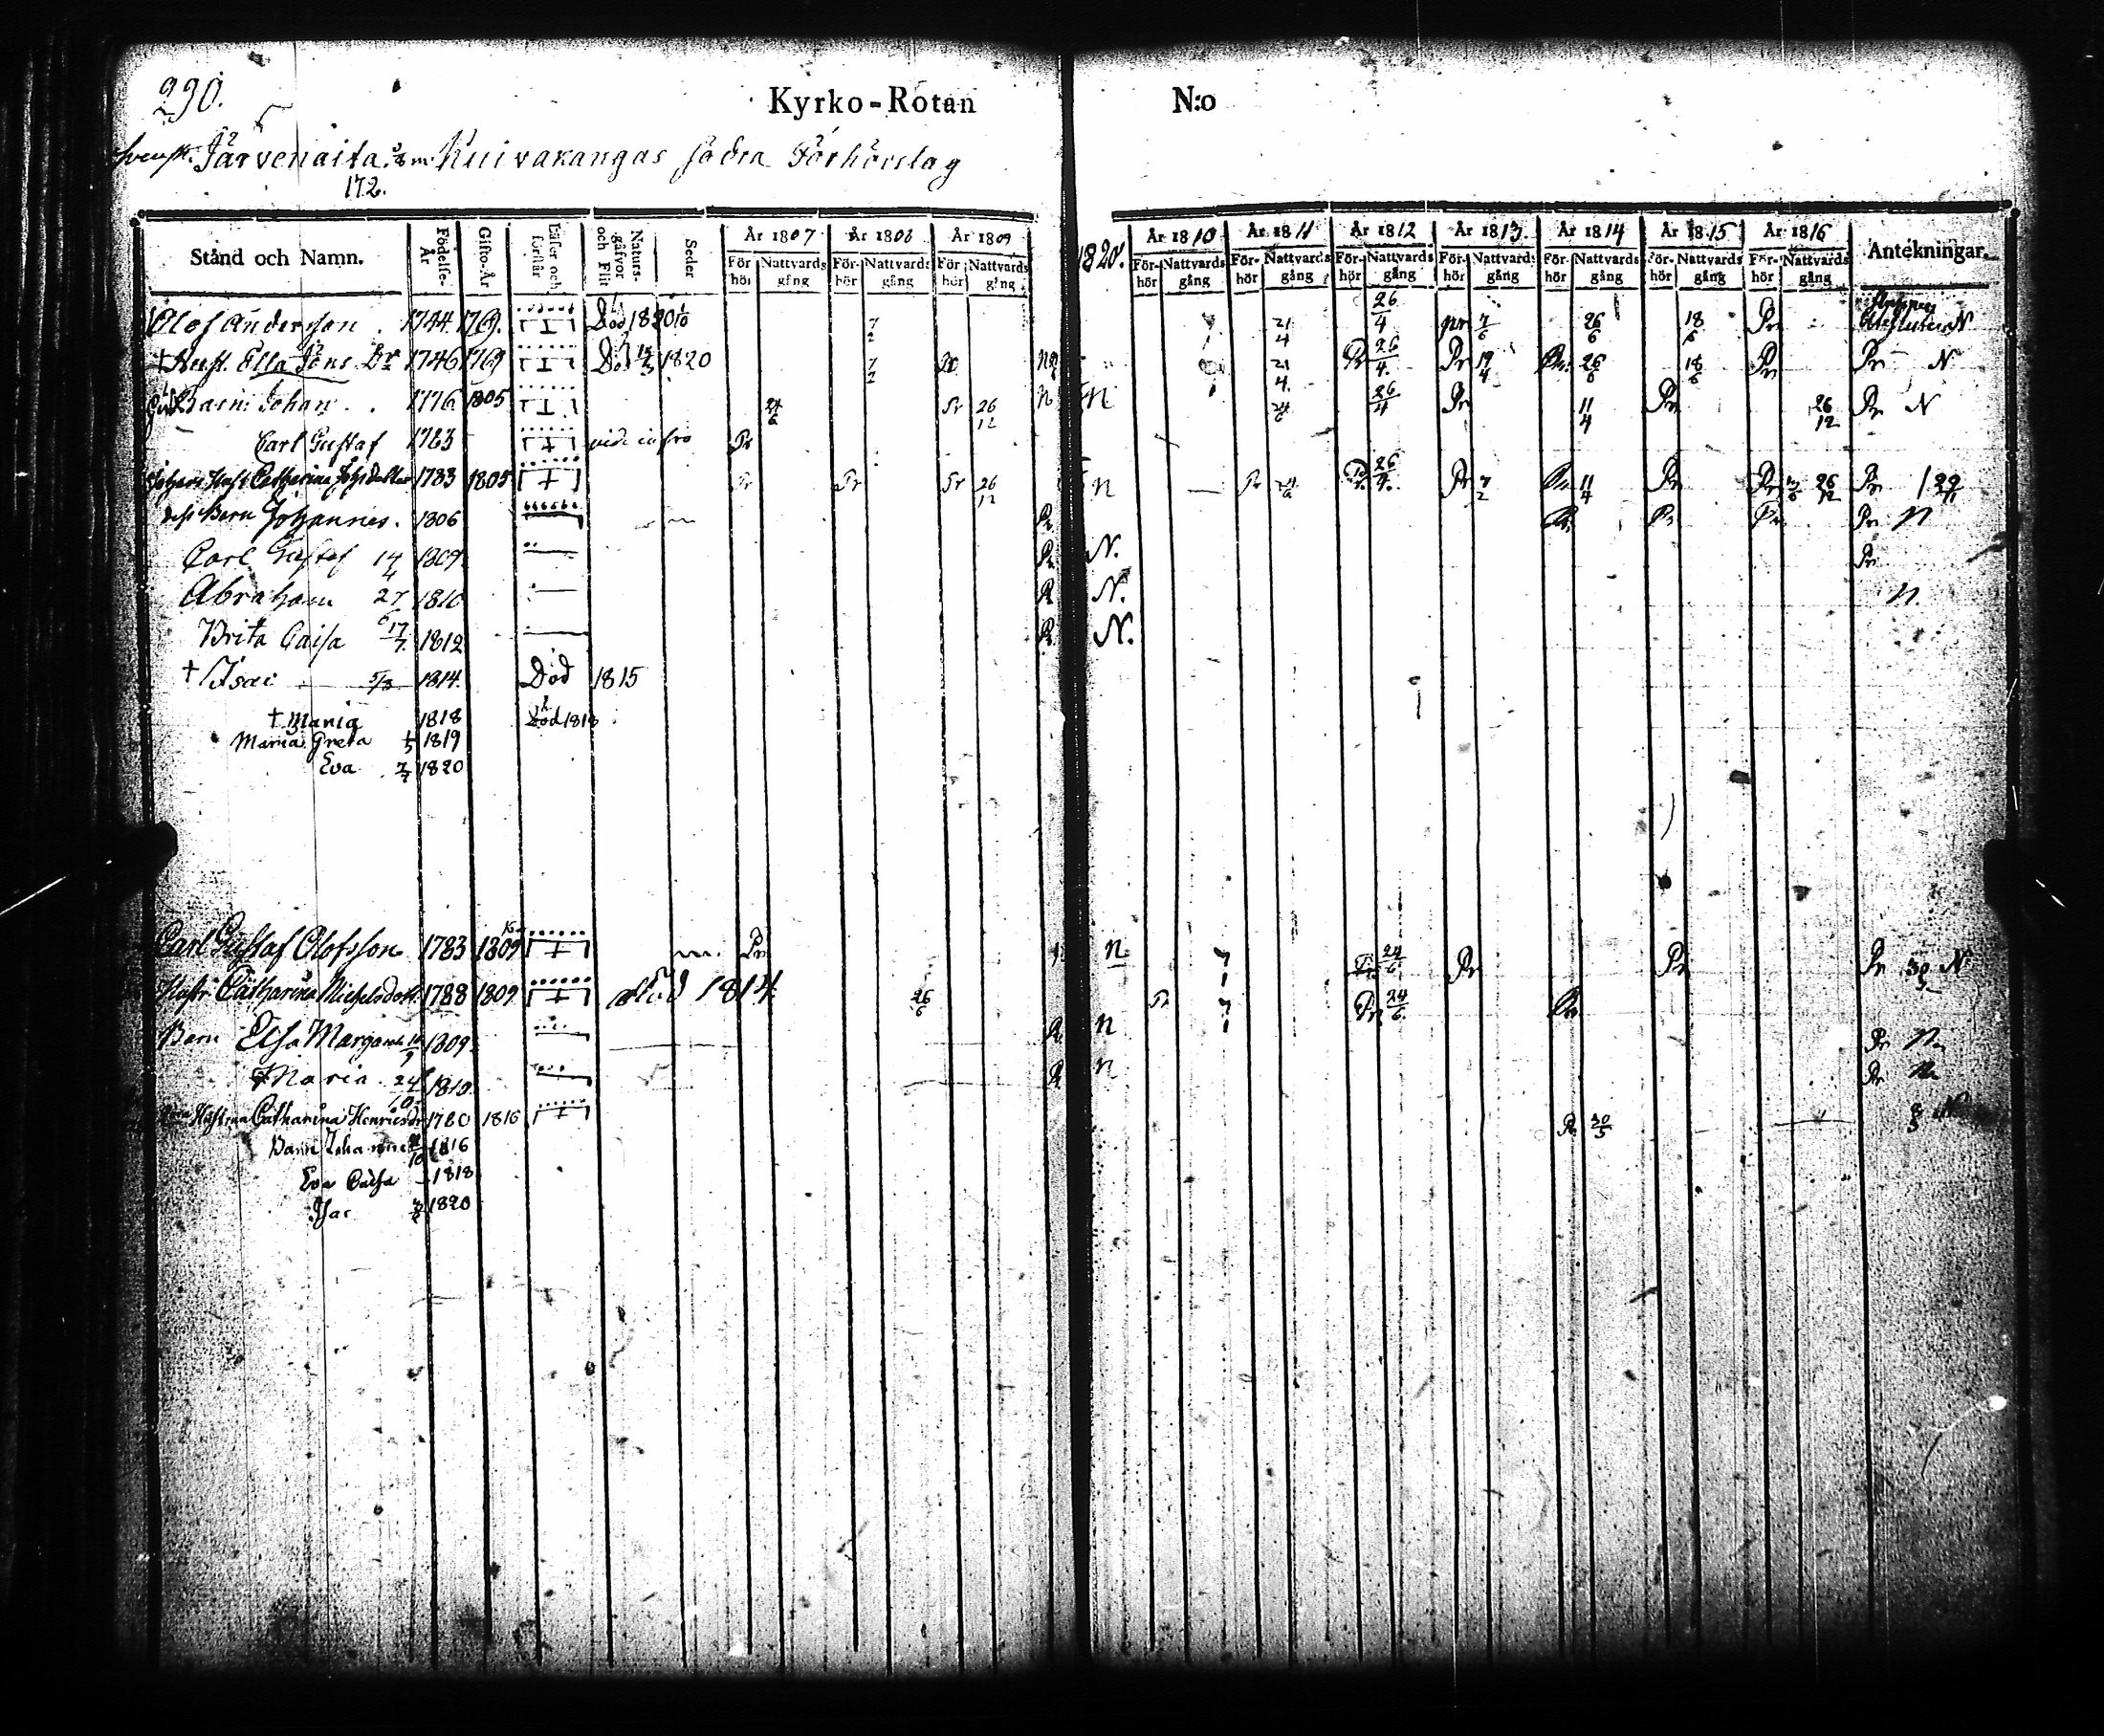 290.
Kyrko-Rotan N:o
Järvenaita Kuivakangas södra Förhörslag
172.
Stånd och Namn. Födelse-År Gifto-År Läser och förstår Naturs-gåfvor och Flit Seder År 1807 År 1808 År 1809 1820. År 1810 År 1811 År 1812 År 1813 År 1814 År 1815 År 1816 Antekningar.
För-hör Nattvards gång För-hör Nattvards gång För-hör Nattvards gång För-hör Nattvards gång För-hör Nattvards gång För-hör Nattvards gång För-hör Nattvards gång För-hör Nattvards gång För-hör Nattvards gång För-hör Nattvards gång
Olof Andersson 1744 1769. Död 1820 7/2 21/4 26/4 pr 7/6 26/6 18/6 Pr N
† Hust. Ella Jöns Dr 1746 1769 Död 1820 7/2 21/4 Pr 26/4 Pr 19/4 26/6 18/6 Pr Pr N
Barn: Johan 1776 1805 24/6 Pr 26/12 N n 24/6 26/4 Pr 11/4 Pr 26/12 Pr N
Carl Gustaf 1783 vide infra Pr
Johans Hust Catharina Johsdotter 1783 1805 Pr Pr Pr 26/12 n Pr 24/6 Pr 26/4 Pr 7/2 Pr 11/4 Pr Pr 26/12 Pr
dess Barn Johannes. 1806 Pr Pr Pr Pr Pr N
Carl Gustaf 14/4 1809. Pr N. Pr
Abraham 27/6 1810 Pr N. N.
Brita Caisa 17/7 1812 Pr N.
† Isac 5/3 1814. Död 1815
† Maria 1818 Död 1818
Maria Greta 1819
Eva 1820
Carl Gustaf Olofsson 1783 1809 Pr n 7/1 Pr 24/6 Pr Pr Pr N
Hustr Catharina Michelsdott. 1788 1809 död 1814. 26/6 Pr 7/1 Pr 24/6 Pr
Barn Elsa Margareta 1809. Pr n Pr N
Maria 24/10 1810. Pr n Pr N
Hustrun Catharina Henricsdr 1780 1816 Pr 30/5 N
Barn Johannes 1816
Eva Caisa 1818
Isac 1820